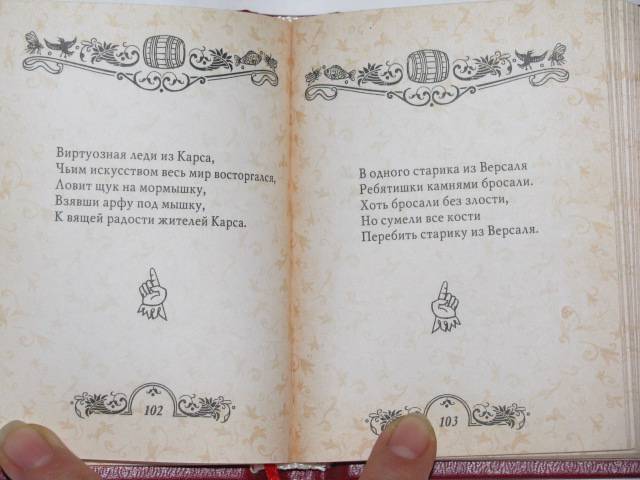 Виртуозная леди из Карса,
Чьим искусством весь мир восторгался,
Ловит щук на мормышку,
Взявши арфу под мышку,
К вящей радости жителей Карса.
102
В одного старика из Версаля
Ребятишки камнями бросали.
Хоть бросали без злости,
Но сумели все кости
Перебить старику из Версаля.
103